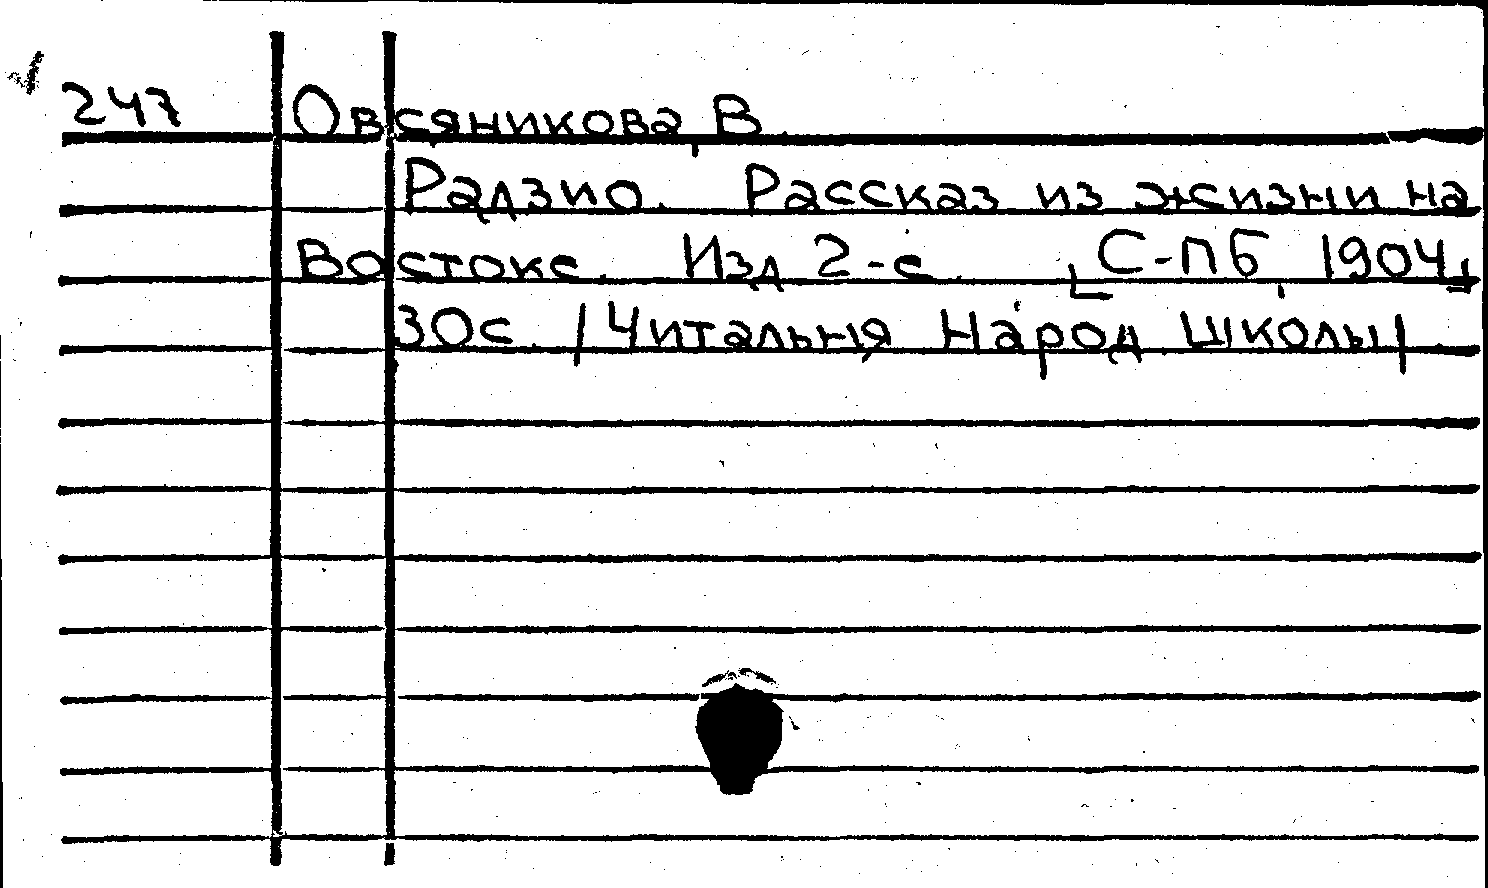 247 Овсяникова, В.
Радзио. Рассказ из жизни на
Востоке. Изд. 2-е. [С-ПБ, 1904]
30с. /Читальня Народ. Школы/